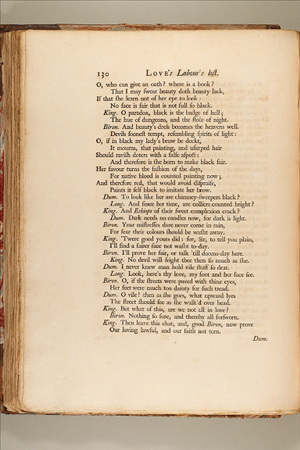 130 LOVE's Labour's lost.
O, who can give an oath? where is a book?
That I may swear beauty doth beauty lack,
If that she learn not of her eye to look:
No face is fair that is not full so black.
King. O paradox, black is the badge of hell;
The hue of dungeons, and the stole of night.
Biron. And beauty's dress becomes the heavens well.
Devils soonest tempt, resembling spirits of light:
O, if in black my lady's brow be deckt,
It mourns, that painting, and usurped hair
Should ravish doters with a false aspect:
And therefore is she born to make black fair.
Her favour turns the fashion of the days,
For native blood is counted painting now;
And therefore red, that would avoid dispraise,
Paints it self black to imitate her brow.
Dum. To look like her are chimney-sweepers black?
Long. And since her time, are colliers counted bright?
King. And Ethiops of their sweet complexion crack?
Dum. Dark needs no candles now, for dark is light.
Biron. Your mistresses dare never come in rain,
For fear their colours should be washt away.
King. 'Twere good yours did: for, Sir, to tell you plain,
I'll find a fairer face not washt to-day.
Biron. I'll prove her fair, or talk 'till dooms-day here.
King. No devil will fright thee then so much as she.
Dum. I never knew man hold vile stuff so dear.
Long. Look, here's thy love, my foot and her face see.
Biron. O, if the streets were paved with thine eyes,
Her feet were much too dainty for such tread.
Dum. O vile! then as she goes, what upward lyes
The street should see as she walk'd over head.
King. But what of this, are we not all in love?
Biron. Nothing so sure, and thereby all forsworn.
King. Then leave this chat, and, good Biron, now prove
Our loving lawful, and our faith not torn.
Dum.